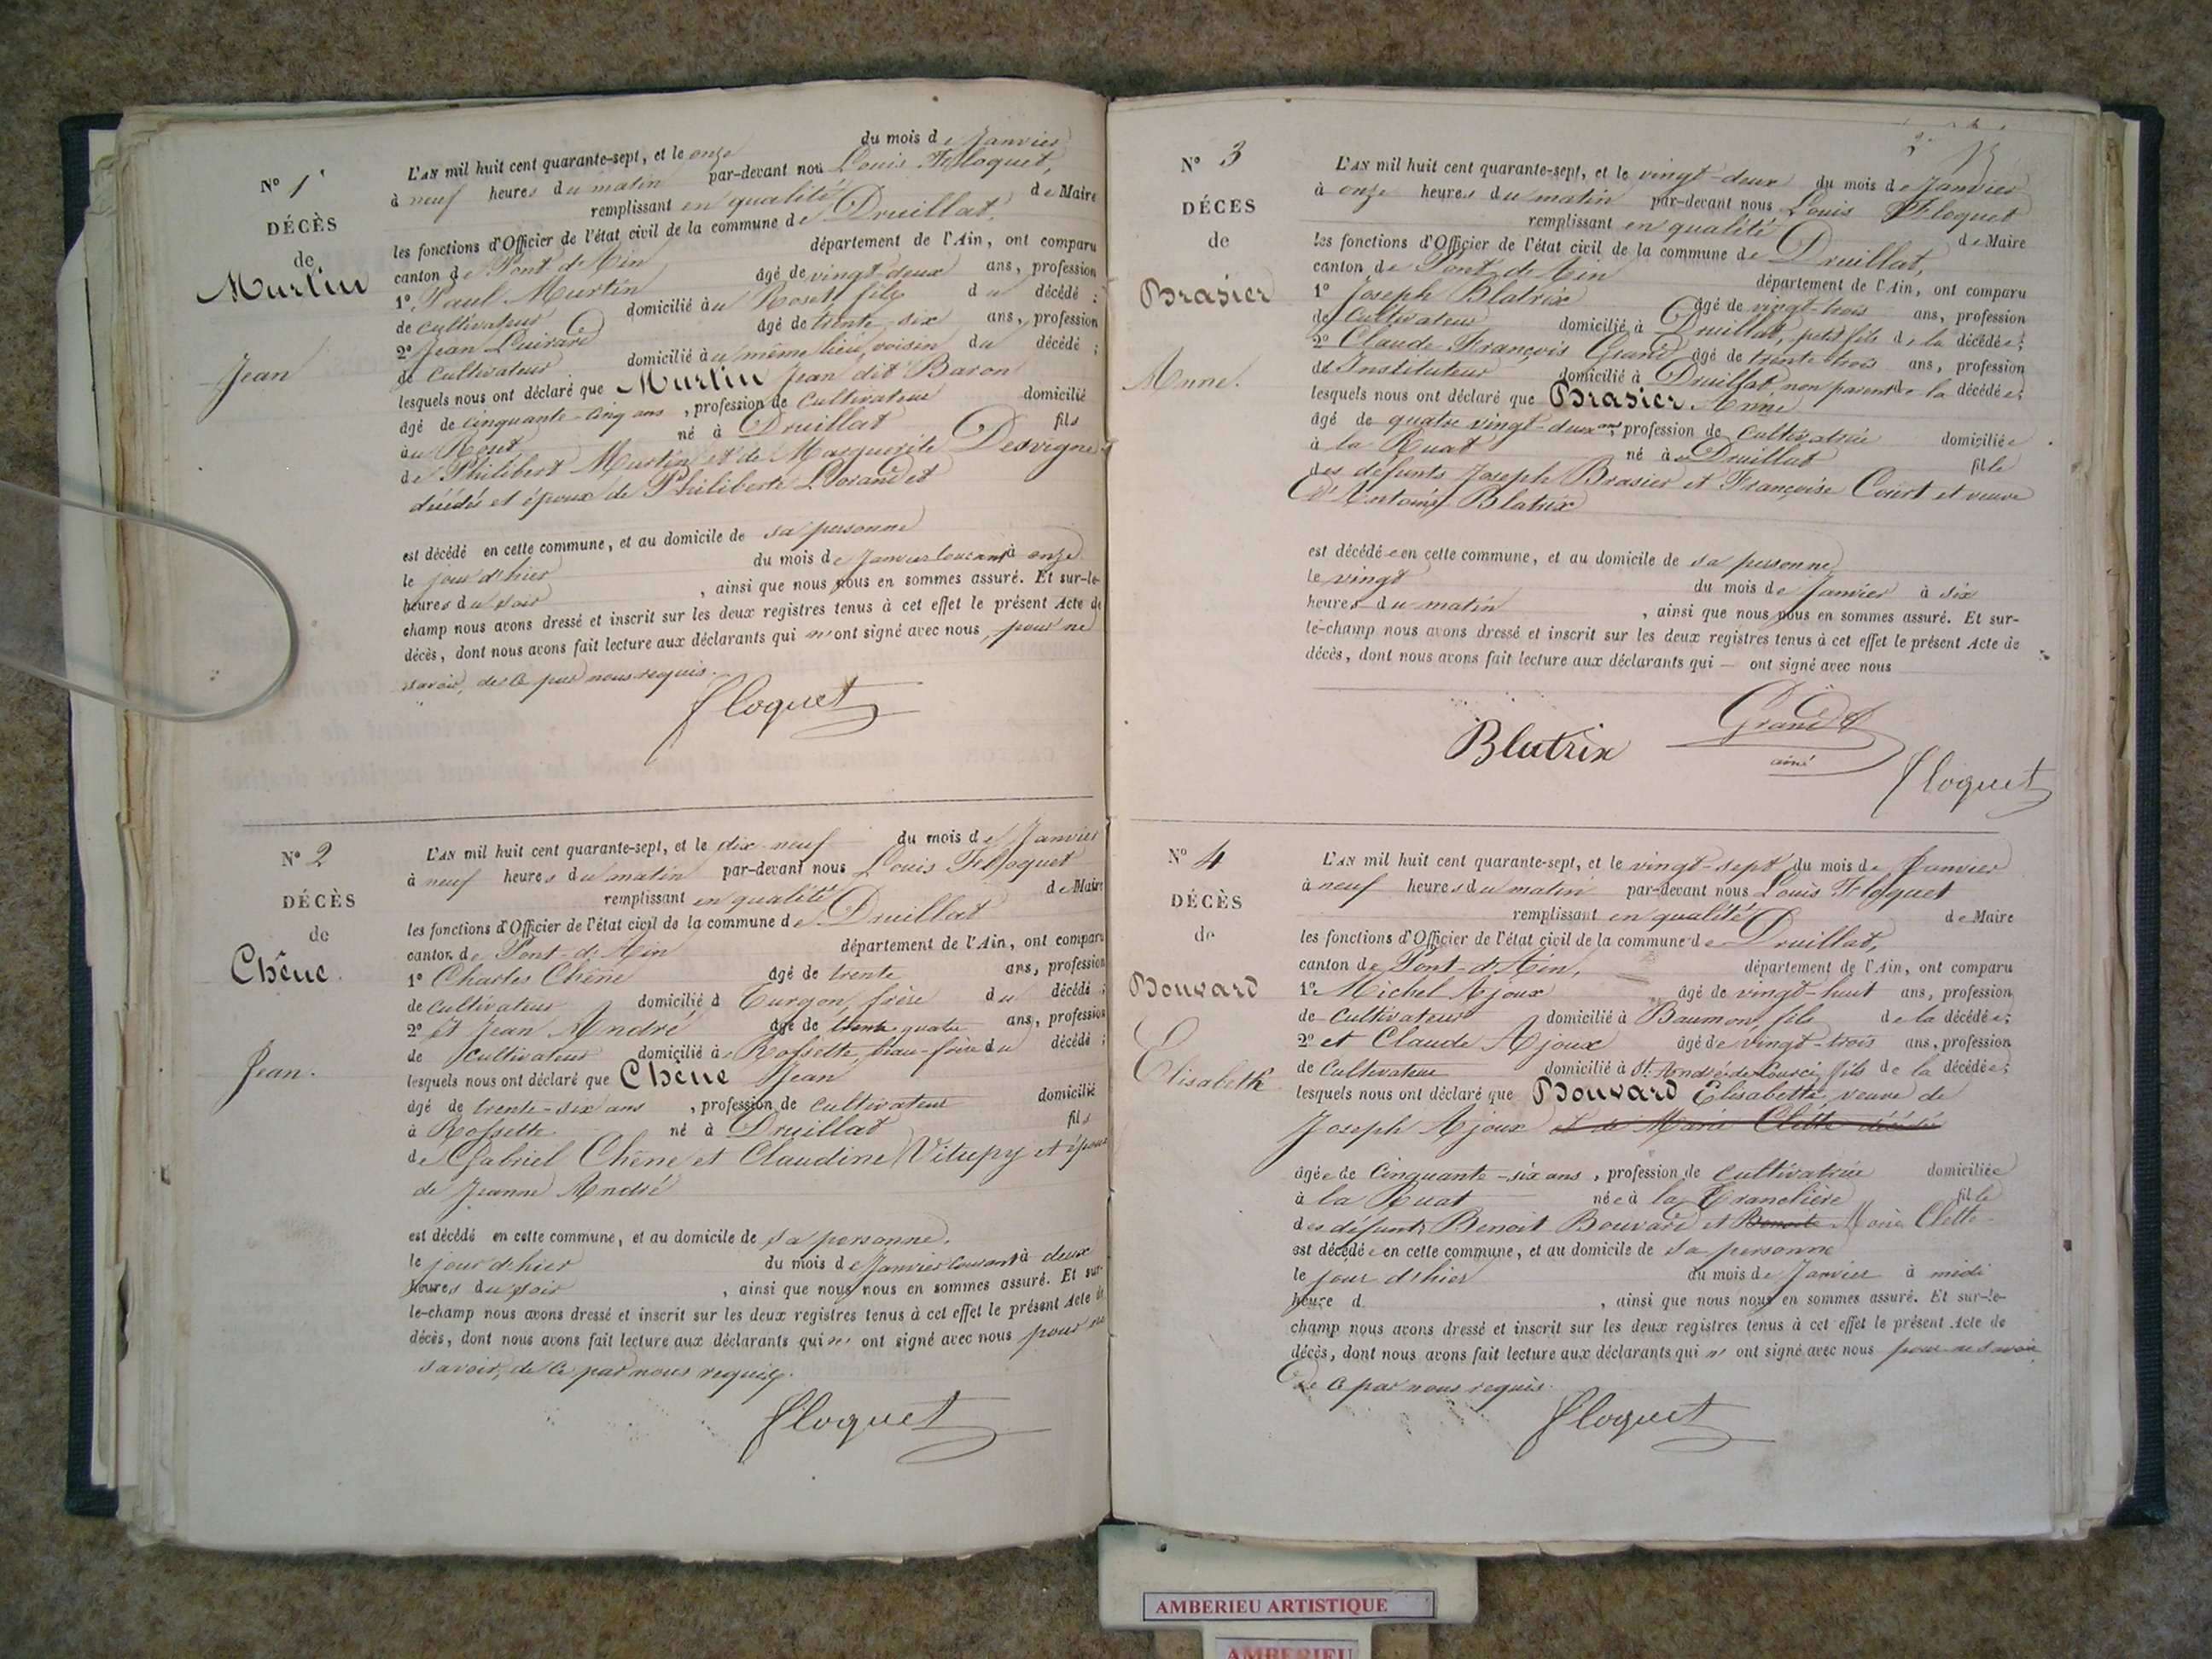 N° 1
DÉCÈS
de
Murtin
Jean
L'AN mil huit cent quarante-sept, et le onze du mois de Janvier
à neuf heures du matin par-devant nous Louis Floquet,
remplissant en qualité de Maire
les fonctions d'Officier de l'état civil de la commune de Druillat,
canton de Pont d'Ain département de l'Ain, ont comparu
1° Paul Murtin âgé de vingt-deux ans, profession
de cultivateur domicilié au Roset, fils du décédé ;
2° Jean âgé de trente six ans, profession
de cultivateur domicilié au même lieu, voisin du décédé ;
lesquels nous ont déclaré que Murtin Jean dit Baron
âgé de cinquante-cinq ans, profession de cultivateur domicilié
au Roset né à Druillat fils
de Philibert Murtin et de Marguerite Desvigne
décédés et époux de Philiberte
est décédé en cette commune, et au domicile de sa personne
le jour d'hier du mois de Janvier courant à onze
heures du soir, ainsi que nous nous en sommes assuré. Et sur-le-
champ nous avons dressé et inscrit sur les deux registres tenus à cet effet le présent Acte de
décès, dont nous avons fait lecture aux déclarants qui n'ont signé avec nous, pour ne
savoir, de ce par nous requis.
Floquet
N° 2
DÉCÈS
de
Chêne.
Jean.
L'AN mil huit cent quarante-sept, et le dix-neuf du mois de Janvier
à neuf heures du matin par-devant nous Louis Floquet
remplissant en qualité de Maire
les fonctions d'Officier de l'état civil de la commune de Druillat
canton de Pont-d'Ain département de l'Ain, ont comparu
1° Charles Chêne âgé de trente ans, profession
de cultivateur domicilié à Turgon, frère du décédé ;
2° et Jean André âgé de trente quatre ans, profession
de cultivateur domicilié à Rossette, beau-frère du décédé ;
lesquels nous ont déclaré que Chêne Jean
âgé de trente-six ans, profession de cultivateur domicilié
à Rossette né à Druillat fils
de Gabriel Chêne et Claudine Vitupy et époux
de Jeanne André
est décédé en cette commune, et au domicile de sa personne.
le jour d'hier du mois de Janvier courant à deux
heures du soir, ainsi que nous nous en sommes assuré. Et sur-
le-champ nous avons dressé et inscrit sur les deux registres tenus à cet effet le présent Acte de
décès, dont nous avons fait lecture aux déclarants qui n' ont signé avec nous pour ne
savoir, de ce par nous requis.
Floquet
N° 3
DÉCES
de
Brasier
Anne.
L'AN mil huit cent quarante-sept, et le vingt-deux du mois de Janvier
à onze heures du matin par-devant nous Louis Floquet
remplissant en qualité de Maire
les fonctions d'Officier de l'état civil de la commune de Druillat,
canton de Pont-de Ain département de l'Ain, ont comparu
1° Joseph Blatrix âgé de vingt-trois ans, profession
de Cultivateur domicilié à Druillat, petit fils de la décédée ;
2° Claude François Grand âgé de trente trois ans, profession
de Instituteur domicilié à Druillat, non parent de la décédée ;
lesquels nous ont déclaré que Brasier Anne
âgé de quatre vingt-deux ans, profession de Cultivatrice domiciliée
à la Ruat née à Druillat fille
des défunts Joseph Brasier et Françoise Court et veuve
d'Antoine Blatrix
est décédée en cette commune, et au domicile de sa personne
le vingt du mois de Janvier à six
heures du matin, ainsi que nous nous en sommes assuré. Et sur-
le-champ nous avons dressé et inscrit sur les deux registres tenus à cet effet le présent Acte de
décès, dont nous avons fait lecture aux déclarants qui — ont signé avec nous
Blatrix
Grand
ainé
Floquet
N° 4
DÉCÈS
de
Bouvard
Elisabeth
L'AN mil huit cent quarante-sept, et le vingt-sept du mois de Janvier
à neuf heures du matin par-devant nous Louis Floquet
remplissant en qualité de Maire
les fonctions d'Officier de l'état civil de la commune de Druillat,
canton de Pont-d'Ain, département de l'Ain, ont comparu
1° Michel Ajoux âgé de vingt-huit ans, profession
de Cultivateur domicilié à Baumon, fils de la décédée ;
2° et Claude Ajoux âgé de vingt-trois ans, profession
de Cultivateur domicilié à St. André de fils de la décédée ;
lesquels nous ont déclaré que Bouvard Elisabette veuve de
Joseph Ajoux et de Marie Clette décédé
âgée de Cinquante-six ans, profession de cultivatrice domiciliée
à la Ruat née à la Tranclière fille
des défunts Benoit Bouvard et Benoite Marie Clette
est décédée en cette commune, et au domicile de sa personne
le jour d'hier du mois de Janvier à midi
heure d , ainsi que nous nous en sommes assuré. Et sur-le-
champ nous avons dressé et inscrit sur les deux registres tenus à cet effet le présent Acte de
décès, dont nous avons fait lecture aux déclarants qui n' ont signé avec nous pour ne savoir
de ce par nous requis.
Floquet
AMBERIEU ARTISTIQUE
AMBERIEU